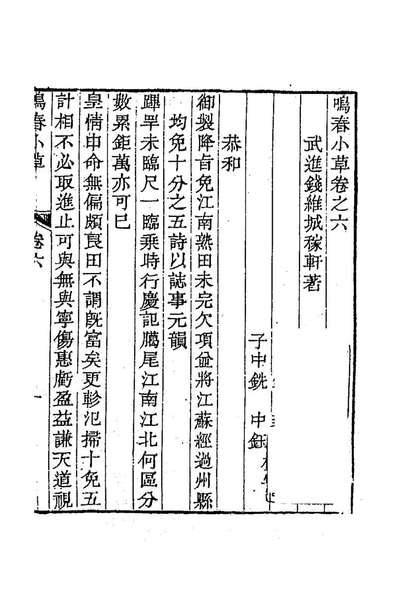 鳴春小草卷之六
武進錢維城稼軒著
子中銑 中鈺
恭和
御製降旨免江南熟田未完欠項並將江蘇經過州縣
均免十分之五詩以誌事元韻
蹕罕未臨尺一臨乗時行慶記騰尾江南江北何區分
數累鉅萬亦可已
皇情申命無偏頗良田不謂旣富矣更軫氾掃十免五
計相不必取進止可與無與寧傷惠虧盈益謙天道視
鳴春小草
卷六
一